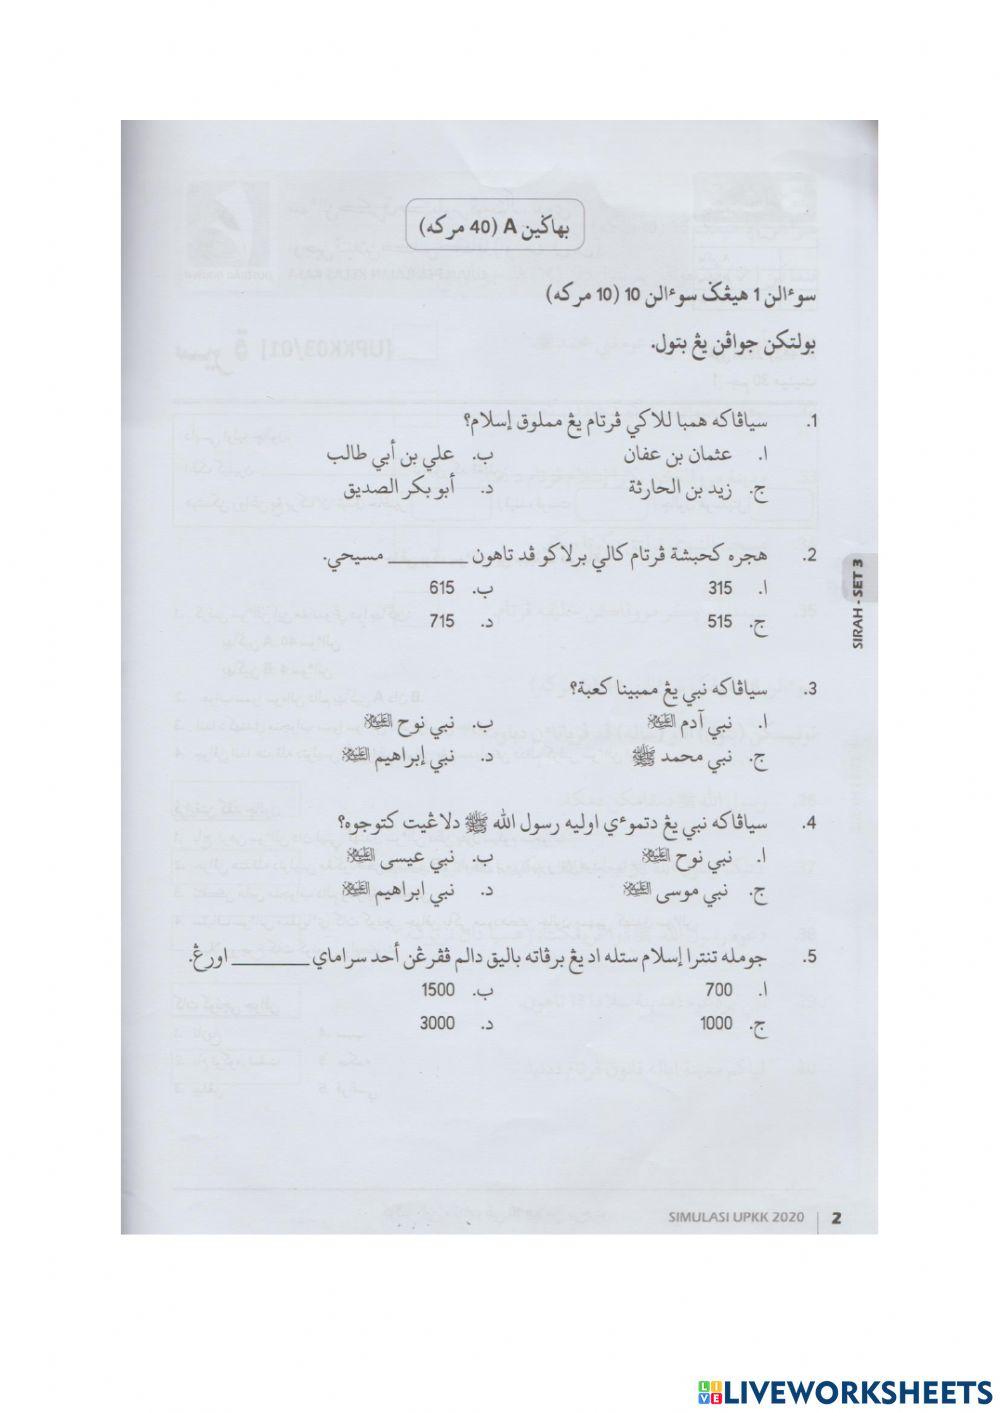 بهاݢين A (40 مركه)
سوءالن 1 هيڠݢ سوءالن 10 (10 مركه)
بولتكن جواڤن يڠ بتول.
1. سياڤاكه همبا للاكي ڤرتام يڠ مملوق إسلام؟
ا. عثمان بن عفان ب. علي بن أبي طالب
ج. زيد بن الحارثة د. أبو بكر الصديق
2. هجره كحبشة ڤرتام كالي برلاكو ڤد تاهون ________ مسيحي.
ا. 315 ب. 615
ج. 515 د. 715
3. سياڤاكه نبي يڠ ممبينا كعبة؟
ا. نبي آدم عليه السلام ب. نبي نوح عليه السلام
ج. نبي محمد ﷺ د. نبي إبراهيم عليه السلام
4. سياڤاكه نبي يڠ دتموءي اوليه رسول الله ﷺ دلاڠيت كتوجوه؟
ا. نبي نوح عليه السلام ب. نبي عيسى عليه السلام
ج. نبي موسى عليه السلام د. نبي ابراهيم عليه السلام
5. جومله تنترا إسلام ستله اد يڠ برڤاته باليق دالم ڤڤرڠن أحد سراماي ________ اورڠ.
ا. 700 ب. 1500
ج. 1000 د. 3000
SIRAH - SET 3
SIMULASI UPKK 2020 | 2
LIVEWORKSHEETS